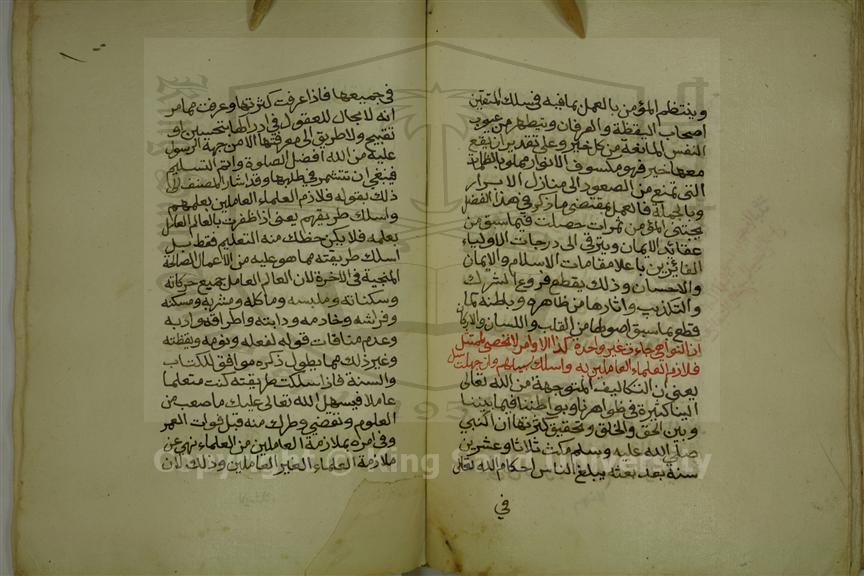 وينتظم المؤمن بالعمل بما فيه في سلك المتقين
اصحاب اليقظة والعرفان ويتطهر من عيوب
النفس المانعة من كل خير وعلى تقدير ان يقع
معها خير فهو مكسوف الانوار مملو بالظلمة
التي تمنع من الصعود الى منازل الابرار
وبالجملة فالعمل بمقتضى ما ذكر في هذا الفصل
يجتني المؤمن ثمرات حصلت فيما سبق من
عقائد الايمان ويترقى الى درجات الاولياء
الفائزين باعلا مقامات الاسلام والايمان
والاحسان وذلك بقطع فروع الشرك
والتكذيب واثارها من ظاهره وباطنه كما
قطع بما سبق اصولها من القلب واللسان والاركان
ان النواهي جاءت غير واحدة كذا الاوامر لا تحصى لممتثل
فلازم العلماء العاملين به واسلك سبيلهم وان جهلت سل
يعني ان التكاليف المتوجهة من الله تعالى
الينا كثيرة في ظواهرنا وبواطننا فيما بيننا
وبين الحق والخلق وتحقيق كثرتها ان النبي
صلى الله عليه وسلم مكث ثلاثا وعشرين
سنة بعد بعثه يبلغ الناس احكام الله تعالى
في
في جميعها فاذا عرفت كثرتها وعرفت مما مر
انه لا مجال للعقول في ادراكها بتحسين او
تقبيح ولا طريق الى معرفتها الا من جهة الرسول
عليه من الله افضل الصلوة واتم التسليم
فينبغي ان تتشمر في طلبها وقد اشار المصنف الى
ذلك بقوله فلازم العلماء العاملين بعلمهم
واسلك طريقهم يعني اذا ظفرت بالعالم العامل
بعلمه فلا يكن حظك منه التعليم فقط بل
اسلك طريقته مما هو عليه من الاعمال الصالحة
المنجية في الاخرة لان العالم العامل جميع حركاته
وسكناته وملبسه وماكله ومشربه ومسكنه
وفراشه وخادمه ودابته واطراقه وادبه
وعدم منافات قوله لفعله ونومه ويقظته
وغير ذلك مما يطول ذكره موافق للكتاب
والسنة فاذا سلكت طريقته كنت متعلما
عاملا فيسهل الله تعالى عليك ما صعب من
العلوم وتقضي وطرك منه قبل فوات العمر
وفي امره بملازمة العاملين من العلماء نهي عن
ملازمة العلماء الغير العاملين وذلك لان
Copyright © King Saud University
1957